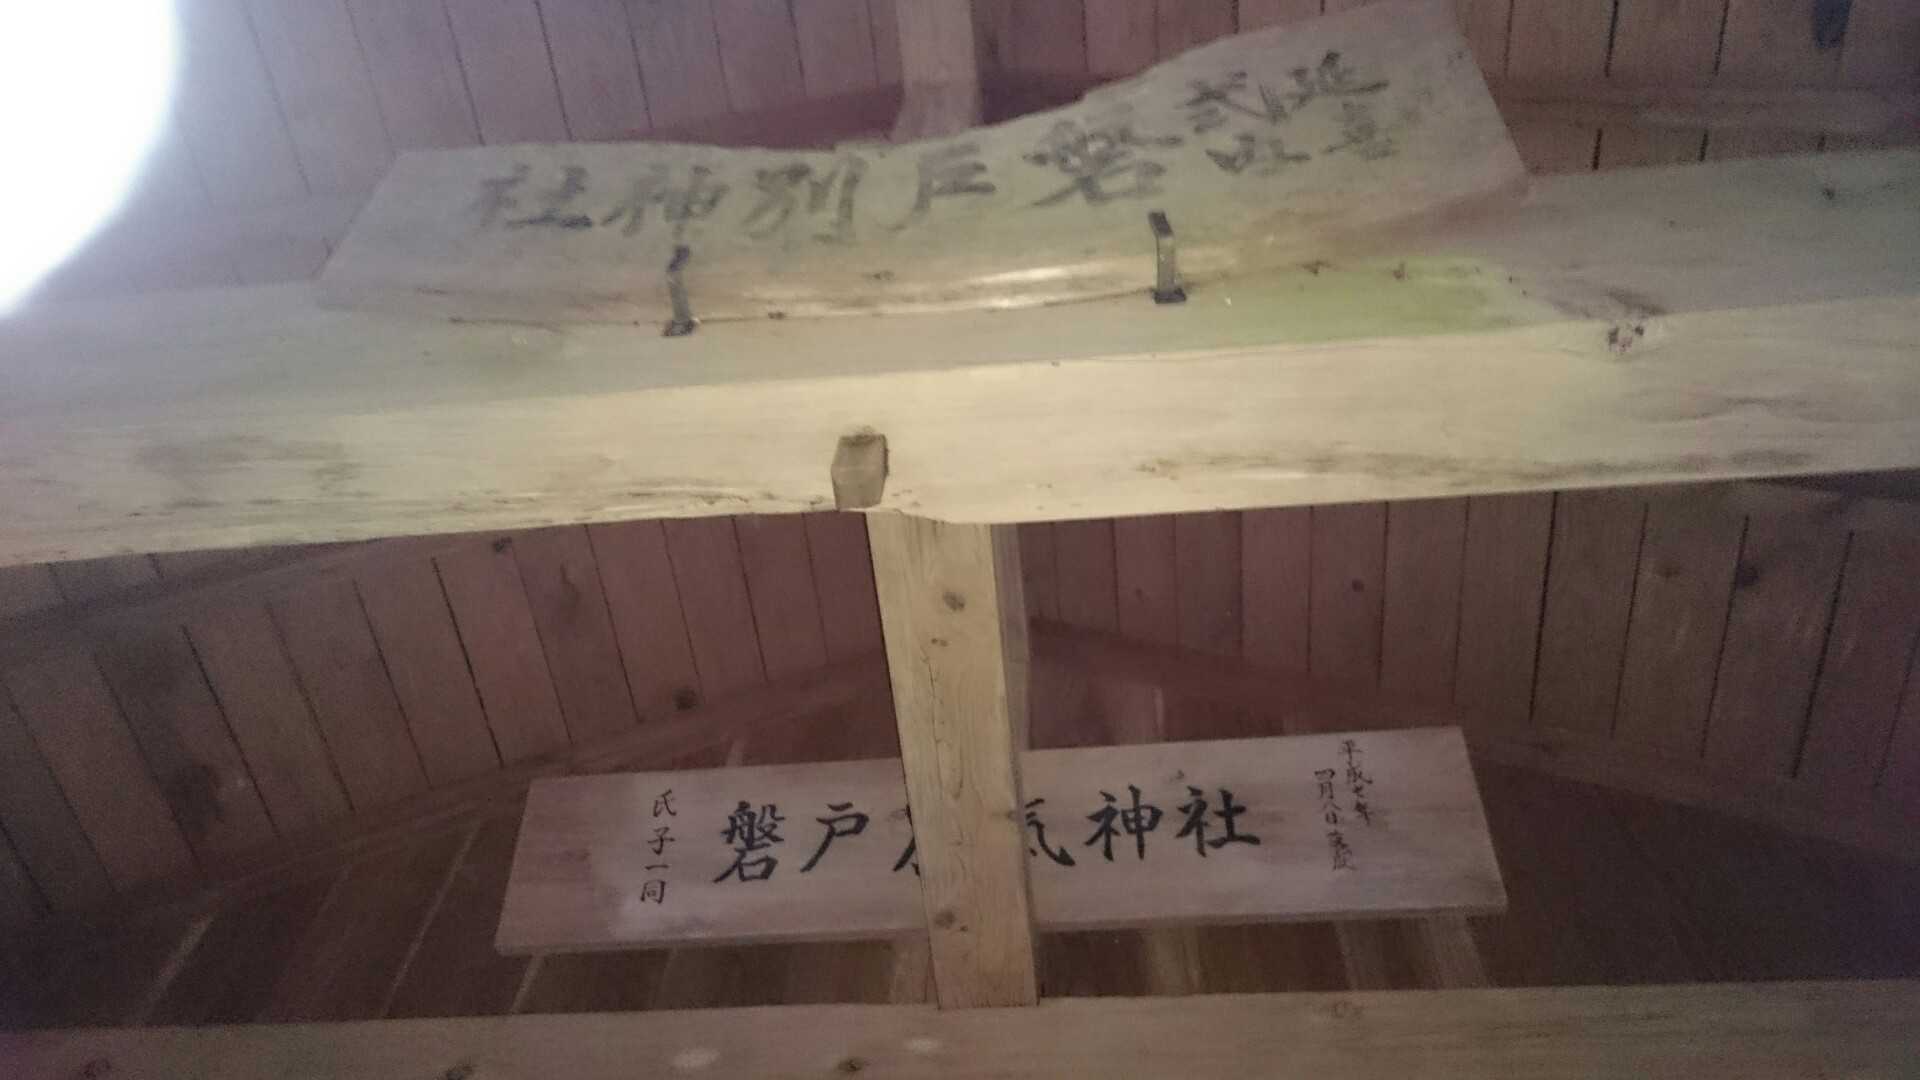 延喜
式内
磐戸別神社
平成七年
四月八日
磐戸
気神社
氏子一同